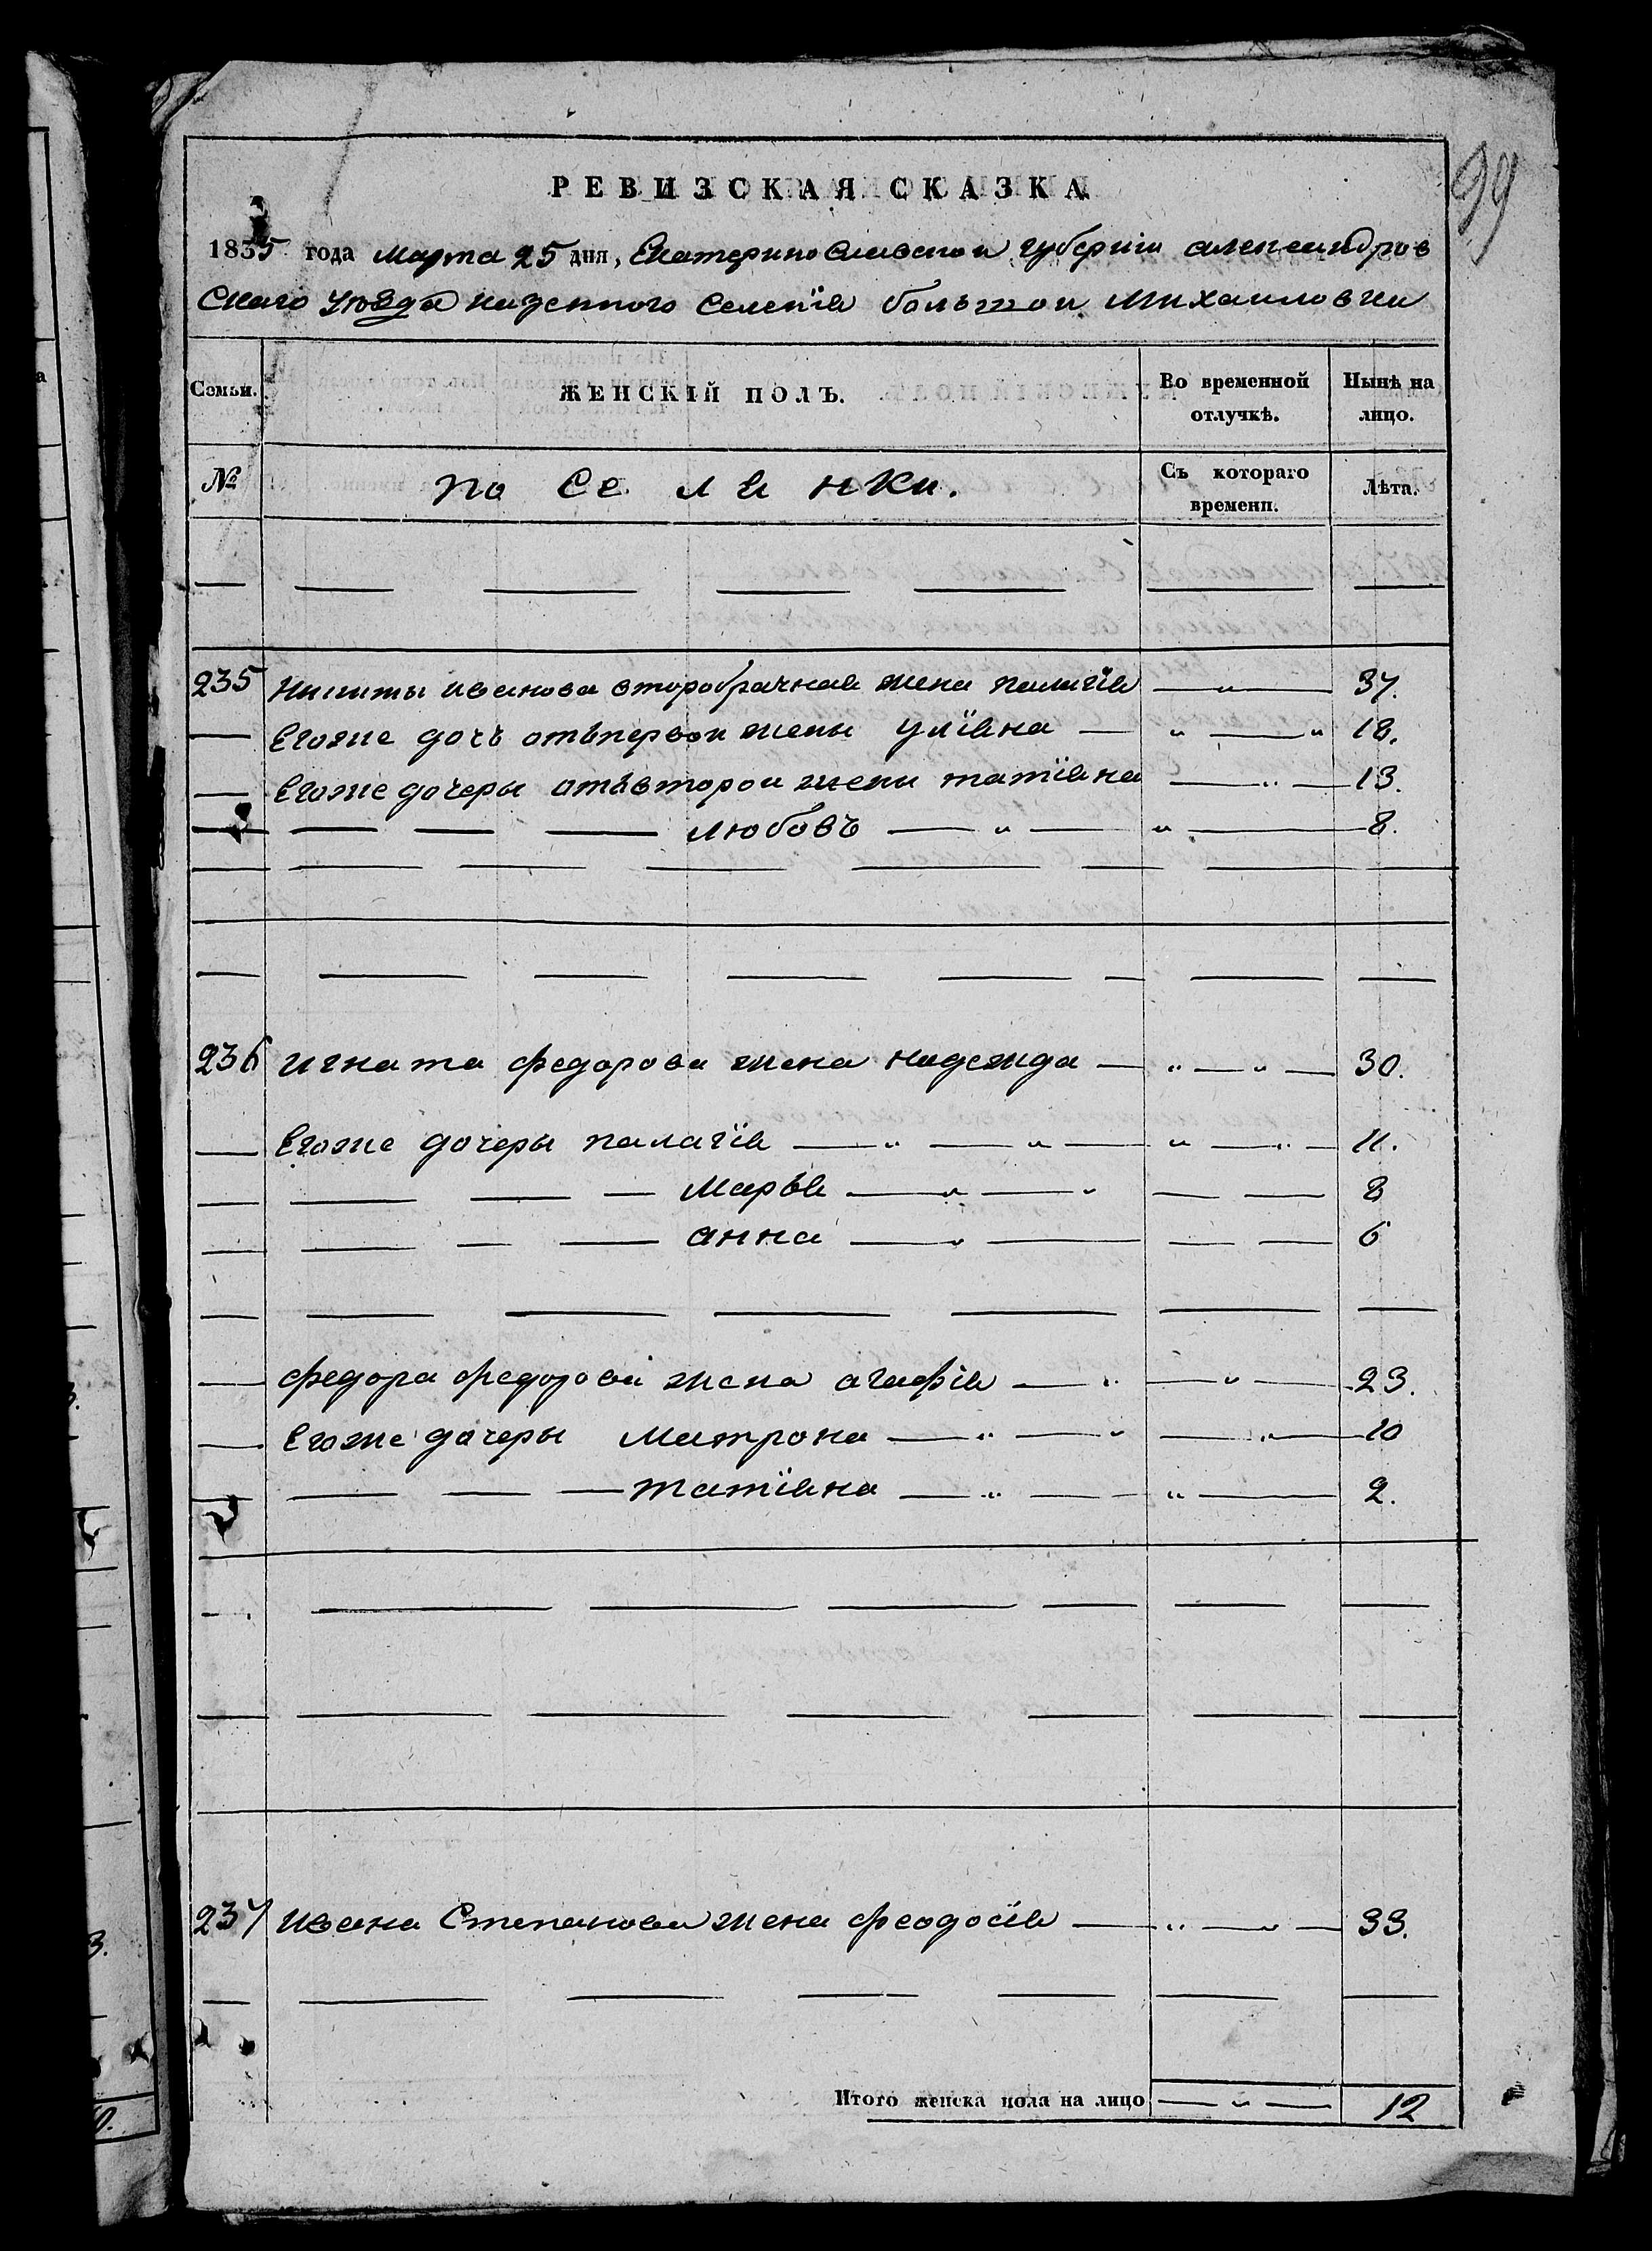 99
РЕВИЗСКАЯ СКАЗКА
1835 года марта 25 дня, Екатеринославской губернiи александров
скаго уѣзда казенного Селенiя большои Михаиловки
Семьи.
ЖЕНСКІЙ ПОЛЪ.
Во временной отлучкѣ.
Нынѣ на лицо.
№
поселянки.
Съ котораго времени.
Лѣта.
235 никиты иванова второбрачная жена палагiя — " — 37.
— Егоже дочь отъпервои жены улiяна — " — " 18.
— Егоже дочеры отъвторои жены татiяна — " — 13.
— — — — любовь — " — " — 8.
236 игната федорова жена надежда — " — " — 30.
— Егоже дочеры палагiя — " — " — " — " — 11.
— — — — Марья — " — " — — 8
— — — — анна — " — — — 6
— федора федорова жена агафiя — " — " — 23.
— Егоже дочеры Матрона — " — " — " — 10
— — — — татiяна — " — — " — 2.
237 ивана Степанова жена феодосiя — " — " — 33.
Итого женска пола на лицо — " — 12